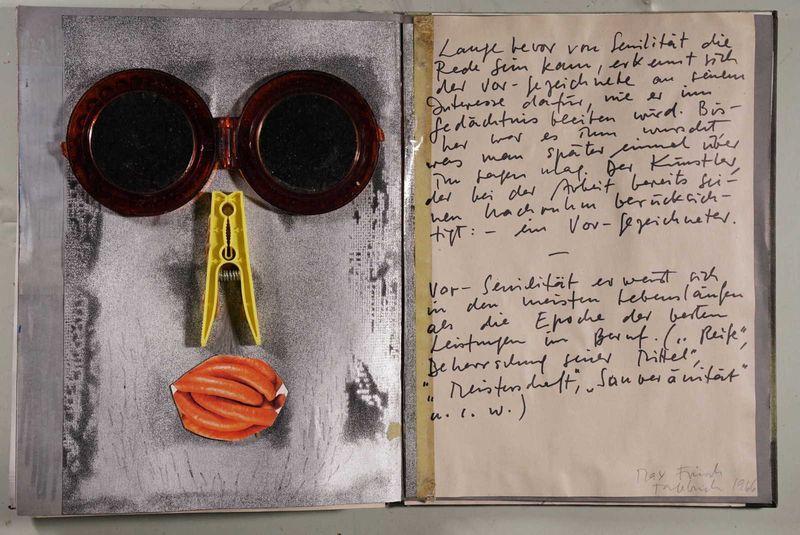 Lange bevor von Senilität die
Rede sein kann, erkennt sich
der Vor-Gezeichnete an seinem
Interesse dafür, wie er im
Gedächtnis bleiben wird. Bis-
her war es ihm wurscht
was man später einmal über
ihn sagen mag. Der Künstler,
der bei der Arbeit bereits sei-
nen Nachruhm berücksich-
tigt: – ein Vor-Gezeichneter.
—
Vor-Senilität erweist sich
in den meisten Lebensläufen
als die Epoche der besten
Leistungen im Beruf. („Reife",
Beherrschung seiner Mittel",
"Meisterschaft", „Souveränität"
u. s. w.)
Max Frisch
Tagebuch 1966